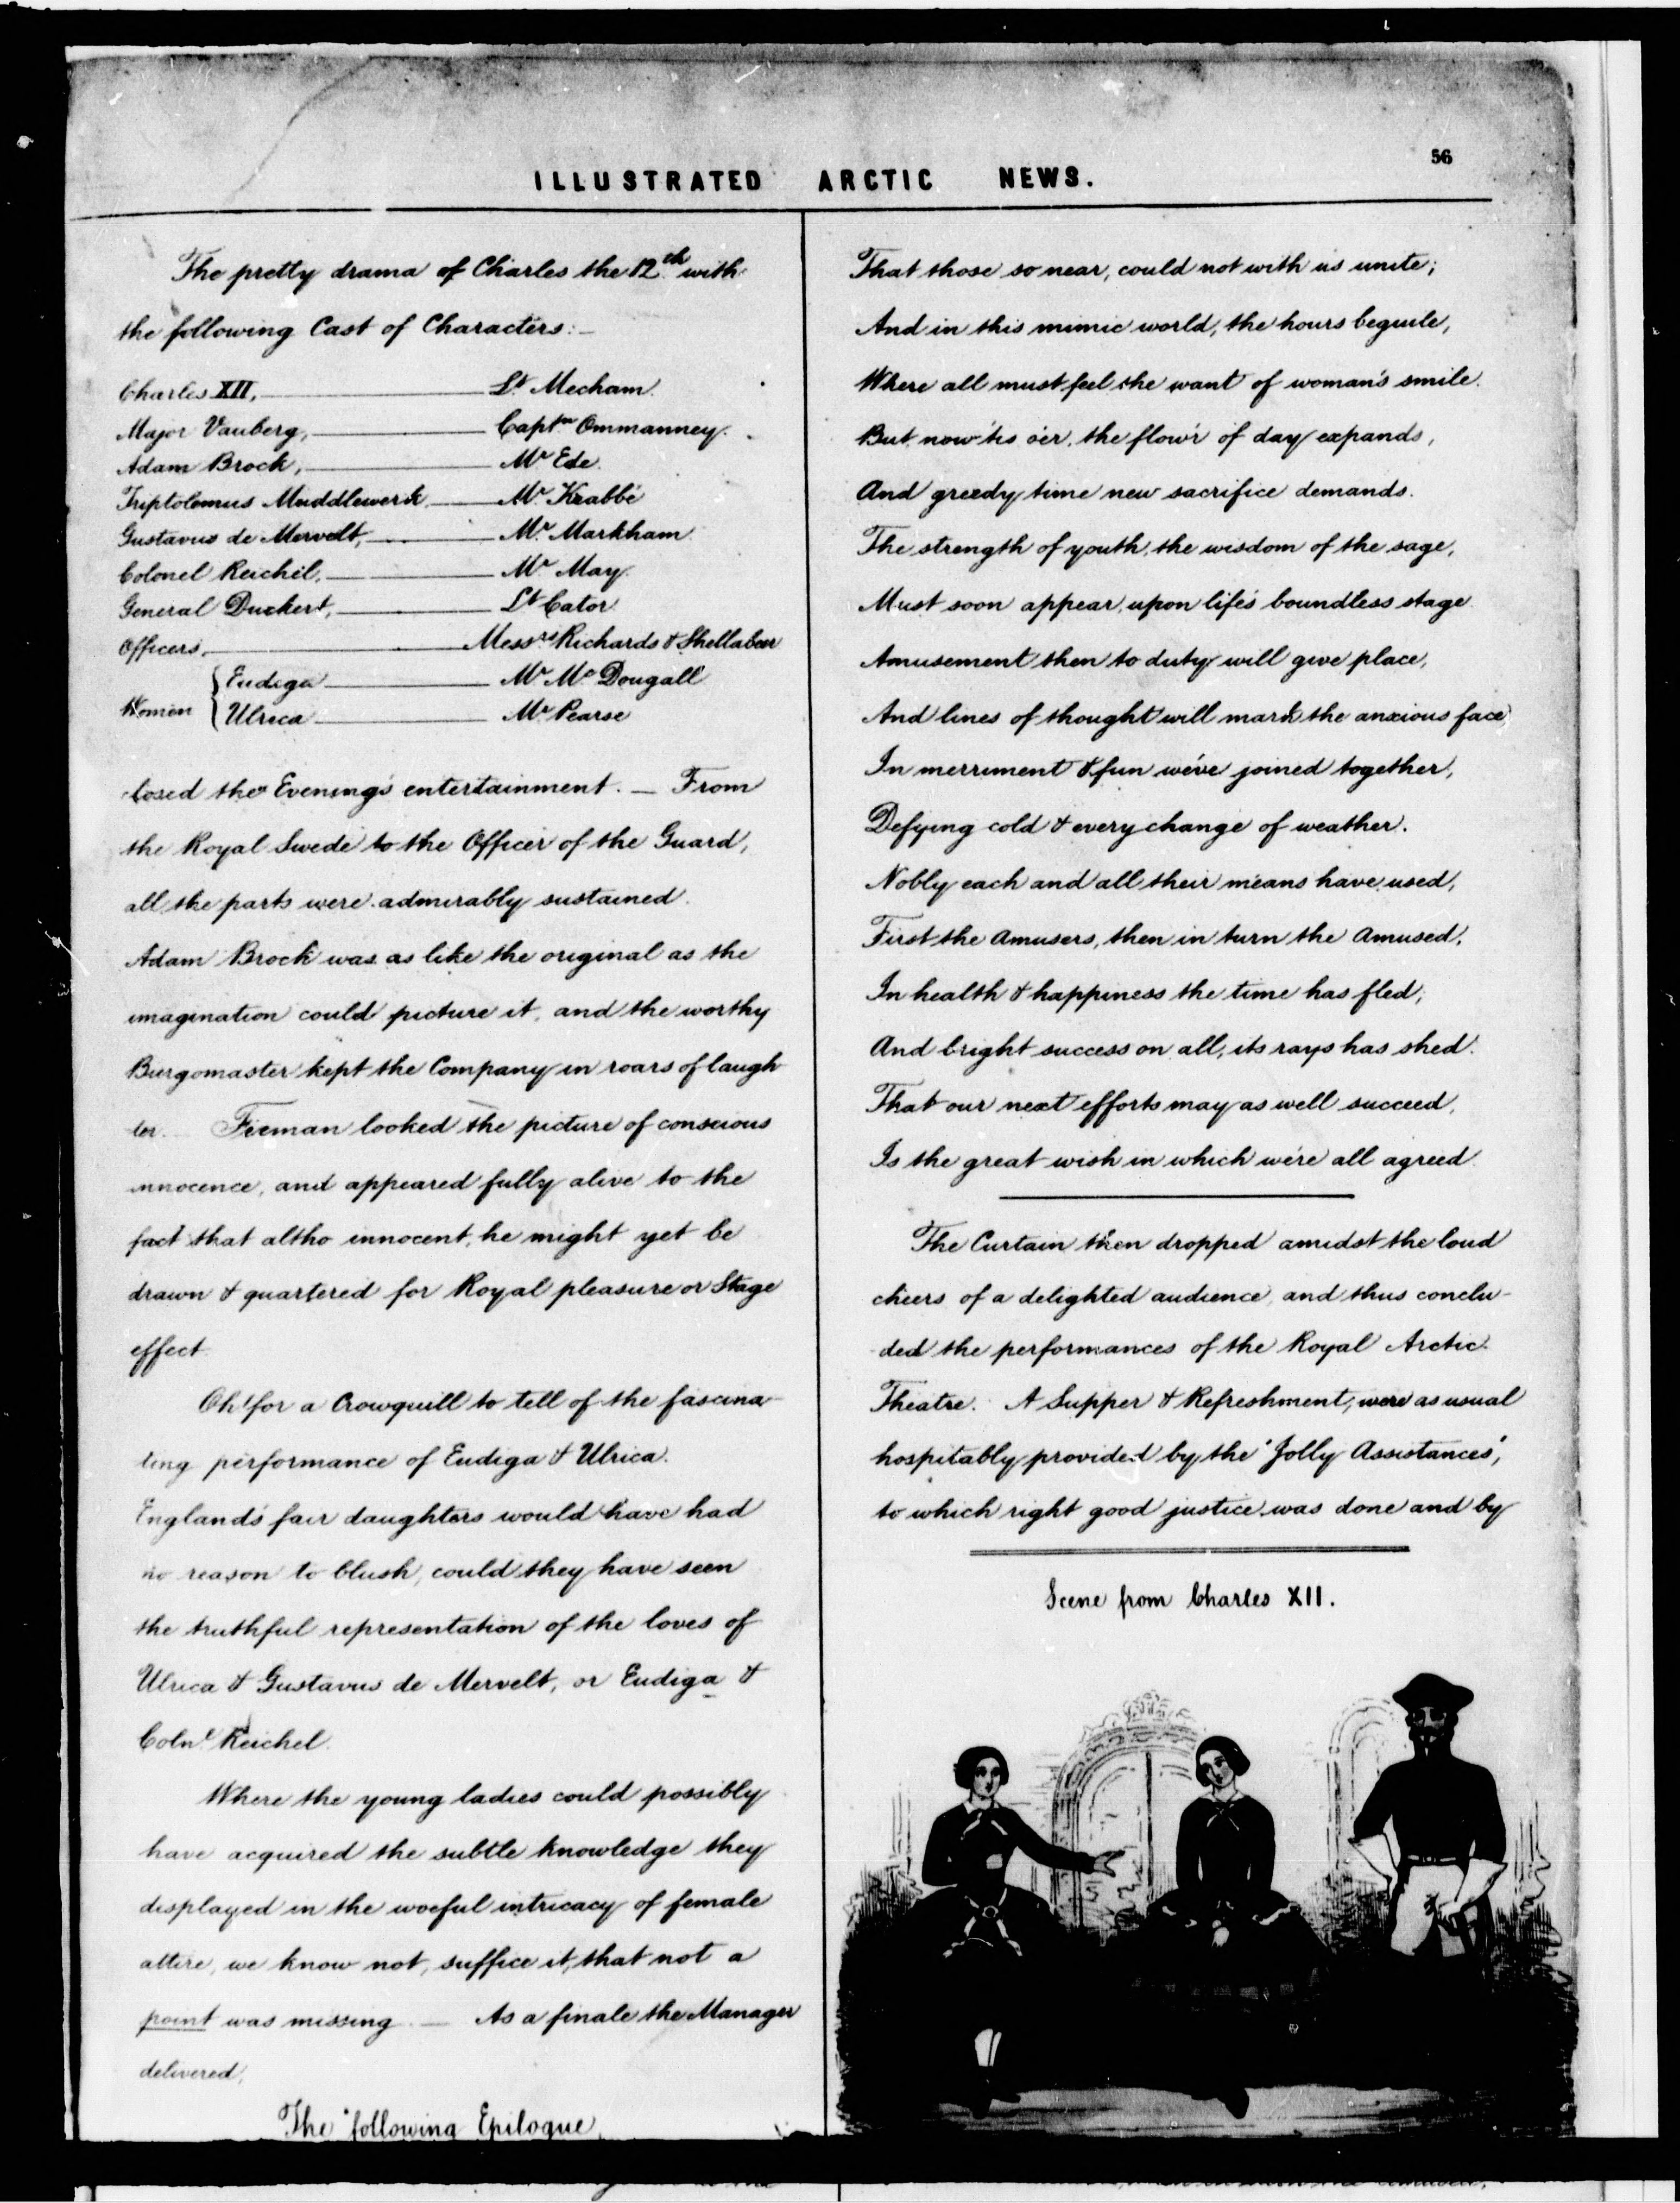 56
ILLUSTRATED ARCTIC NEWS.
The pretty drama of Charles the 12th with
the following Cast of Characters:—
Charles XII, — Lt Mecham.
Major Vauberg, — Captn Ommanney.
Adam Brock, — Mr Ede.
Triptolemus Muddlewerk — Mr Krabbé
Gustavus de Mervelt, — Mr Markham
Colonel Reichel, — Mr May.
General Duckert, — Lt Cator.
Officers, — Messrs Richards & Shellabear
Women { Eudiga — Mr McDougall
Ulrica — Mr Pearse
closed the Evening's entertainment. — From
the Royal Swede to the Officer of the Guard,
all the parts were admirably sustained.
Adam Brock was as like the original as the
imagination could picture it, and the worthy
Burgomaster kept the Company in roars of laugh
ter. Firman looked the picture of conscious
innocence, and appeared fully alive to the
fact that altho innocent, he might yet be
drawn & quartered for Royal pleasure or Stage
effect.
Oh! for a Crowquill to tell of the fascina-
ting performance of Eudiga & Ulrica.
England's fair daughters would have had
no reason to blush, could they have seen
the truthful representation of the loves of
Ulrica & Gustavus de Mervelt, or Eudiga &
Colnl Reichel.
Where the young ladies could possibly
have acquired the subtle knowledge they
displayed in the woeful intricacy of female
attire, we know not, suffice it, that not a
point was missing. — As a finale the Manager
delivered,
The following Epilogue,
That those so near, could not with us unite;
And in this mimic world, the hours beguile,
Where all must feel the want of woman's smile.
But now 'tis o'er, the flow'r of day expands,
And greedy time new sacrifice demands.
The strength of youth, the wisdom of the sage,
Must soon appear, upon life's boundless stage
Amusement then to duty will give place,
And lines of thought will mark the anxious face
In merriment & fun we've joined together,
Defying cold & every change of weather.
Nobly each and all their means have used,
First the Amusers, then in turn the Amused,
In health & happiness the time has fled;
And bright success on all, its rays has shed.
That our next efforts may as well succeed,
Is the great wish in which we're all agreed.
The Curtain then dropped amidst the loud
cheers of a delighted audience, and thus conclu-
ded the performances of the Royal Arctic
Theatre. A Supper & Refreshment, were as usual
hospitably provided by the 'Jolly Assistances',
to which right good justice was done and by
Scene from Charles XII.